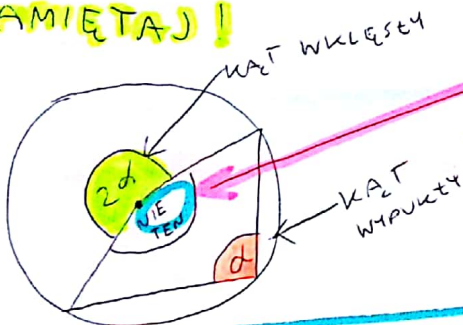 PAMIĘTAJ!
KĄT WKLĘSŁY
2α
NIE
TEN
KĄT
WYPUKŁY
α